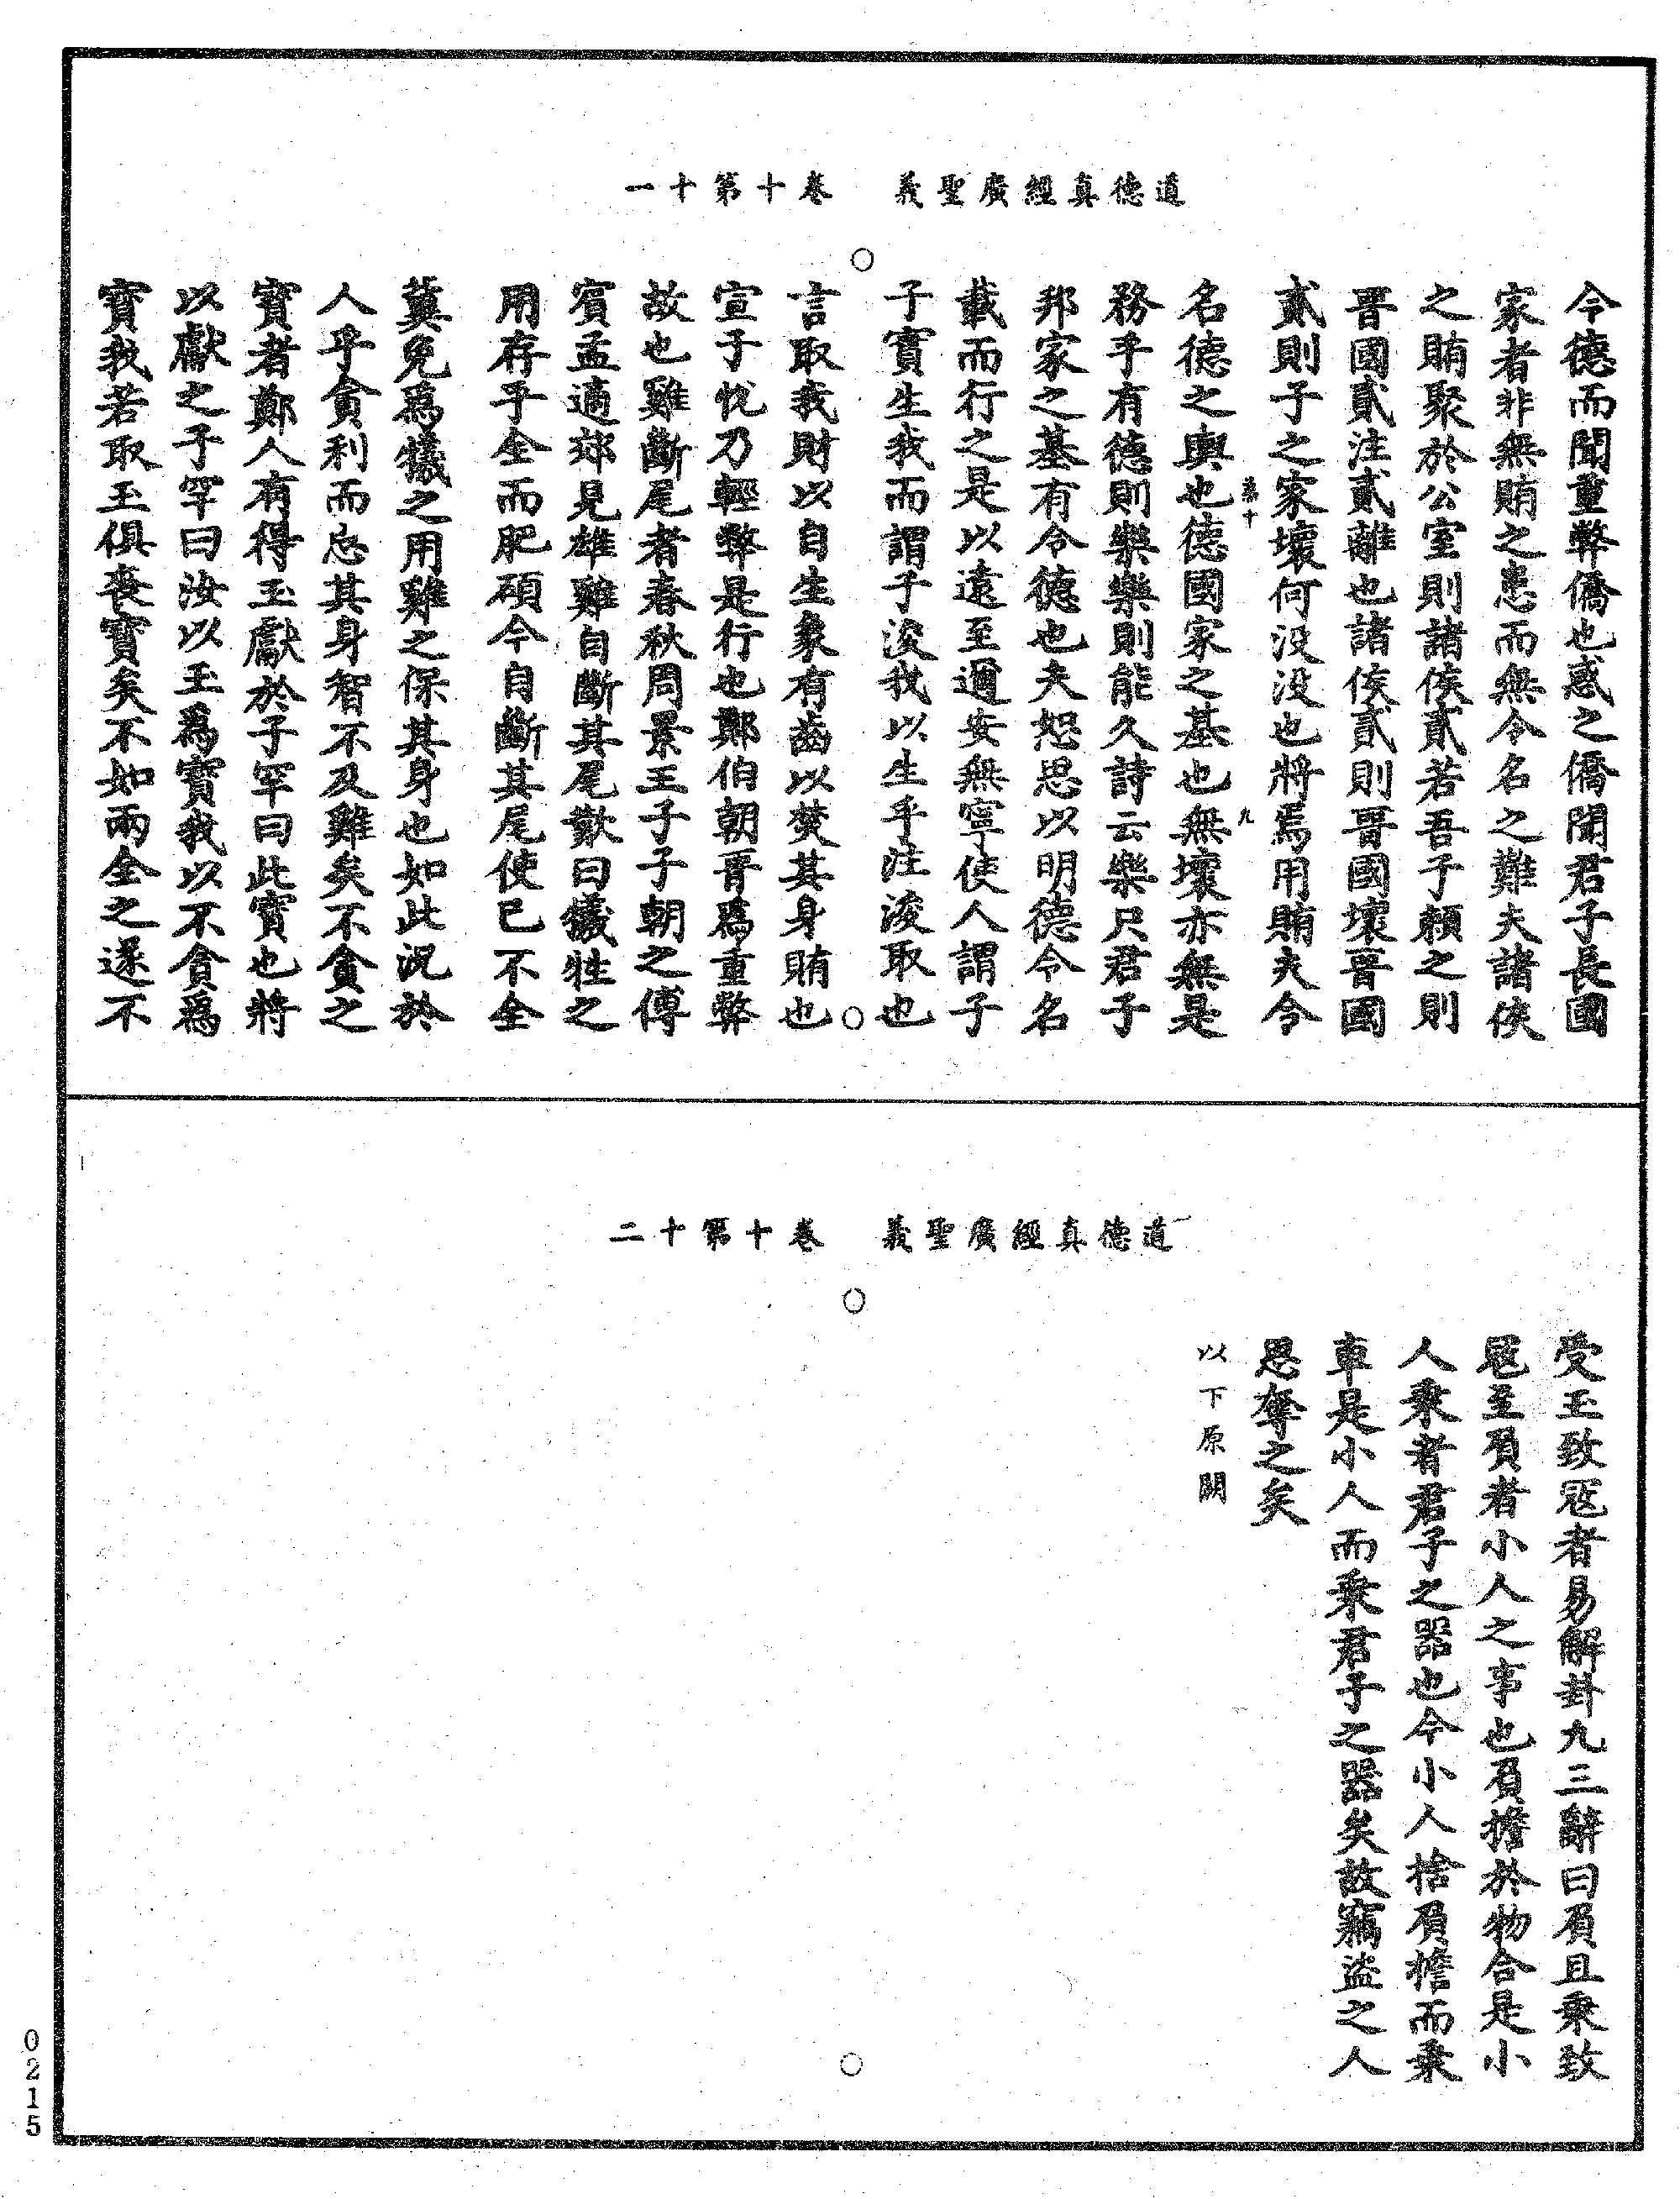 道德真經廣聖義　卷十第十一
令德而聞重弊僑也惑之僑聞君子長國
家者非無賄之患而無令名之難夫諸侯
之賄聚於公室則諸侯貳若吾子賴之則
晉國貳注貳離也諸侯貳則晉國壞晉國
貳則子之家壞何没没也將焉用賄夫令
名德之輿也德國家之基也無壞亦無是
務乎有德則樂樂則能久詩云樂只君子
邦家之基有令德也夫恕思以明德令名
載而行之是以遠至邇安無寧使人謂子
子實生我而謂子浚我以生乎注浚取也
言取我財以自生象有齒以焚其身賄也
宣子悅乃輕弊是行也鄭伯朝晉為重弊
故也雞斷尾者春秋周景王子子朝之傅
賓孟適郊見雄雞自斷其尾歎曰犧牲之
用存乎全而肥碩今自斷其尾使已不全
冀免為犧之用雞之保其身也如此況於
人乎貪利而忘其身智不及雞矣不貪之
寶者鄭人有得玉獻於子罕曰此寶也將
以獻之子罕曰汝以玉為寶我以不貪為
寶我若取玉俱喪寶矣不如兩全之遂不
道德真經廣聖義　卷十第十二
受玉致寇者易解卦九三辭曰負且乘致
寇至負者小人之事也負擔於物合是小
人乘者君子之器也今小人捨負擔而乘
車是小人而乘君子之器矣故竊盜之人
思奪之矣
以下原闕
0215